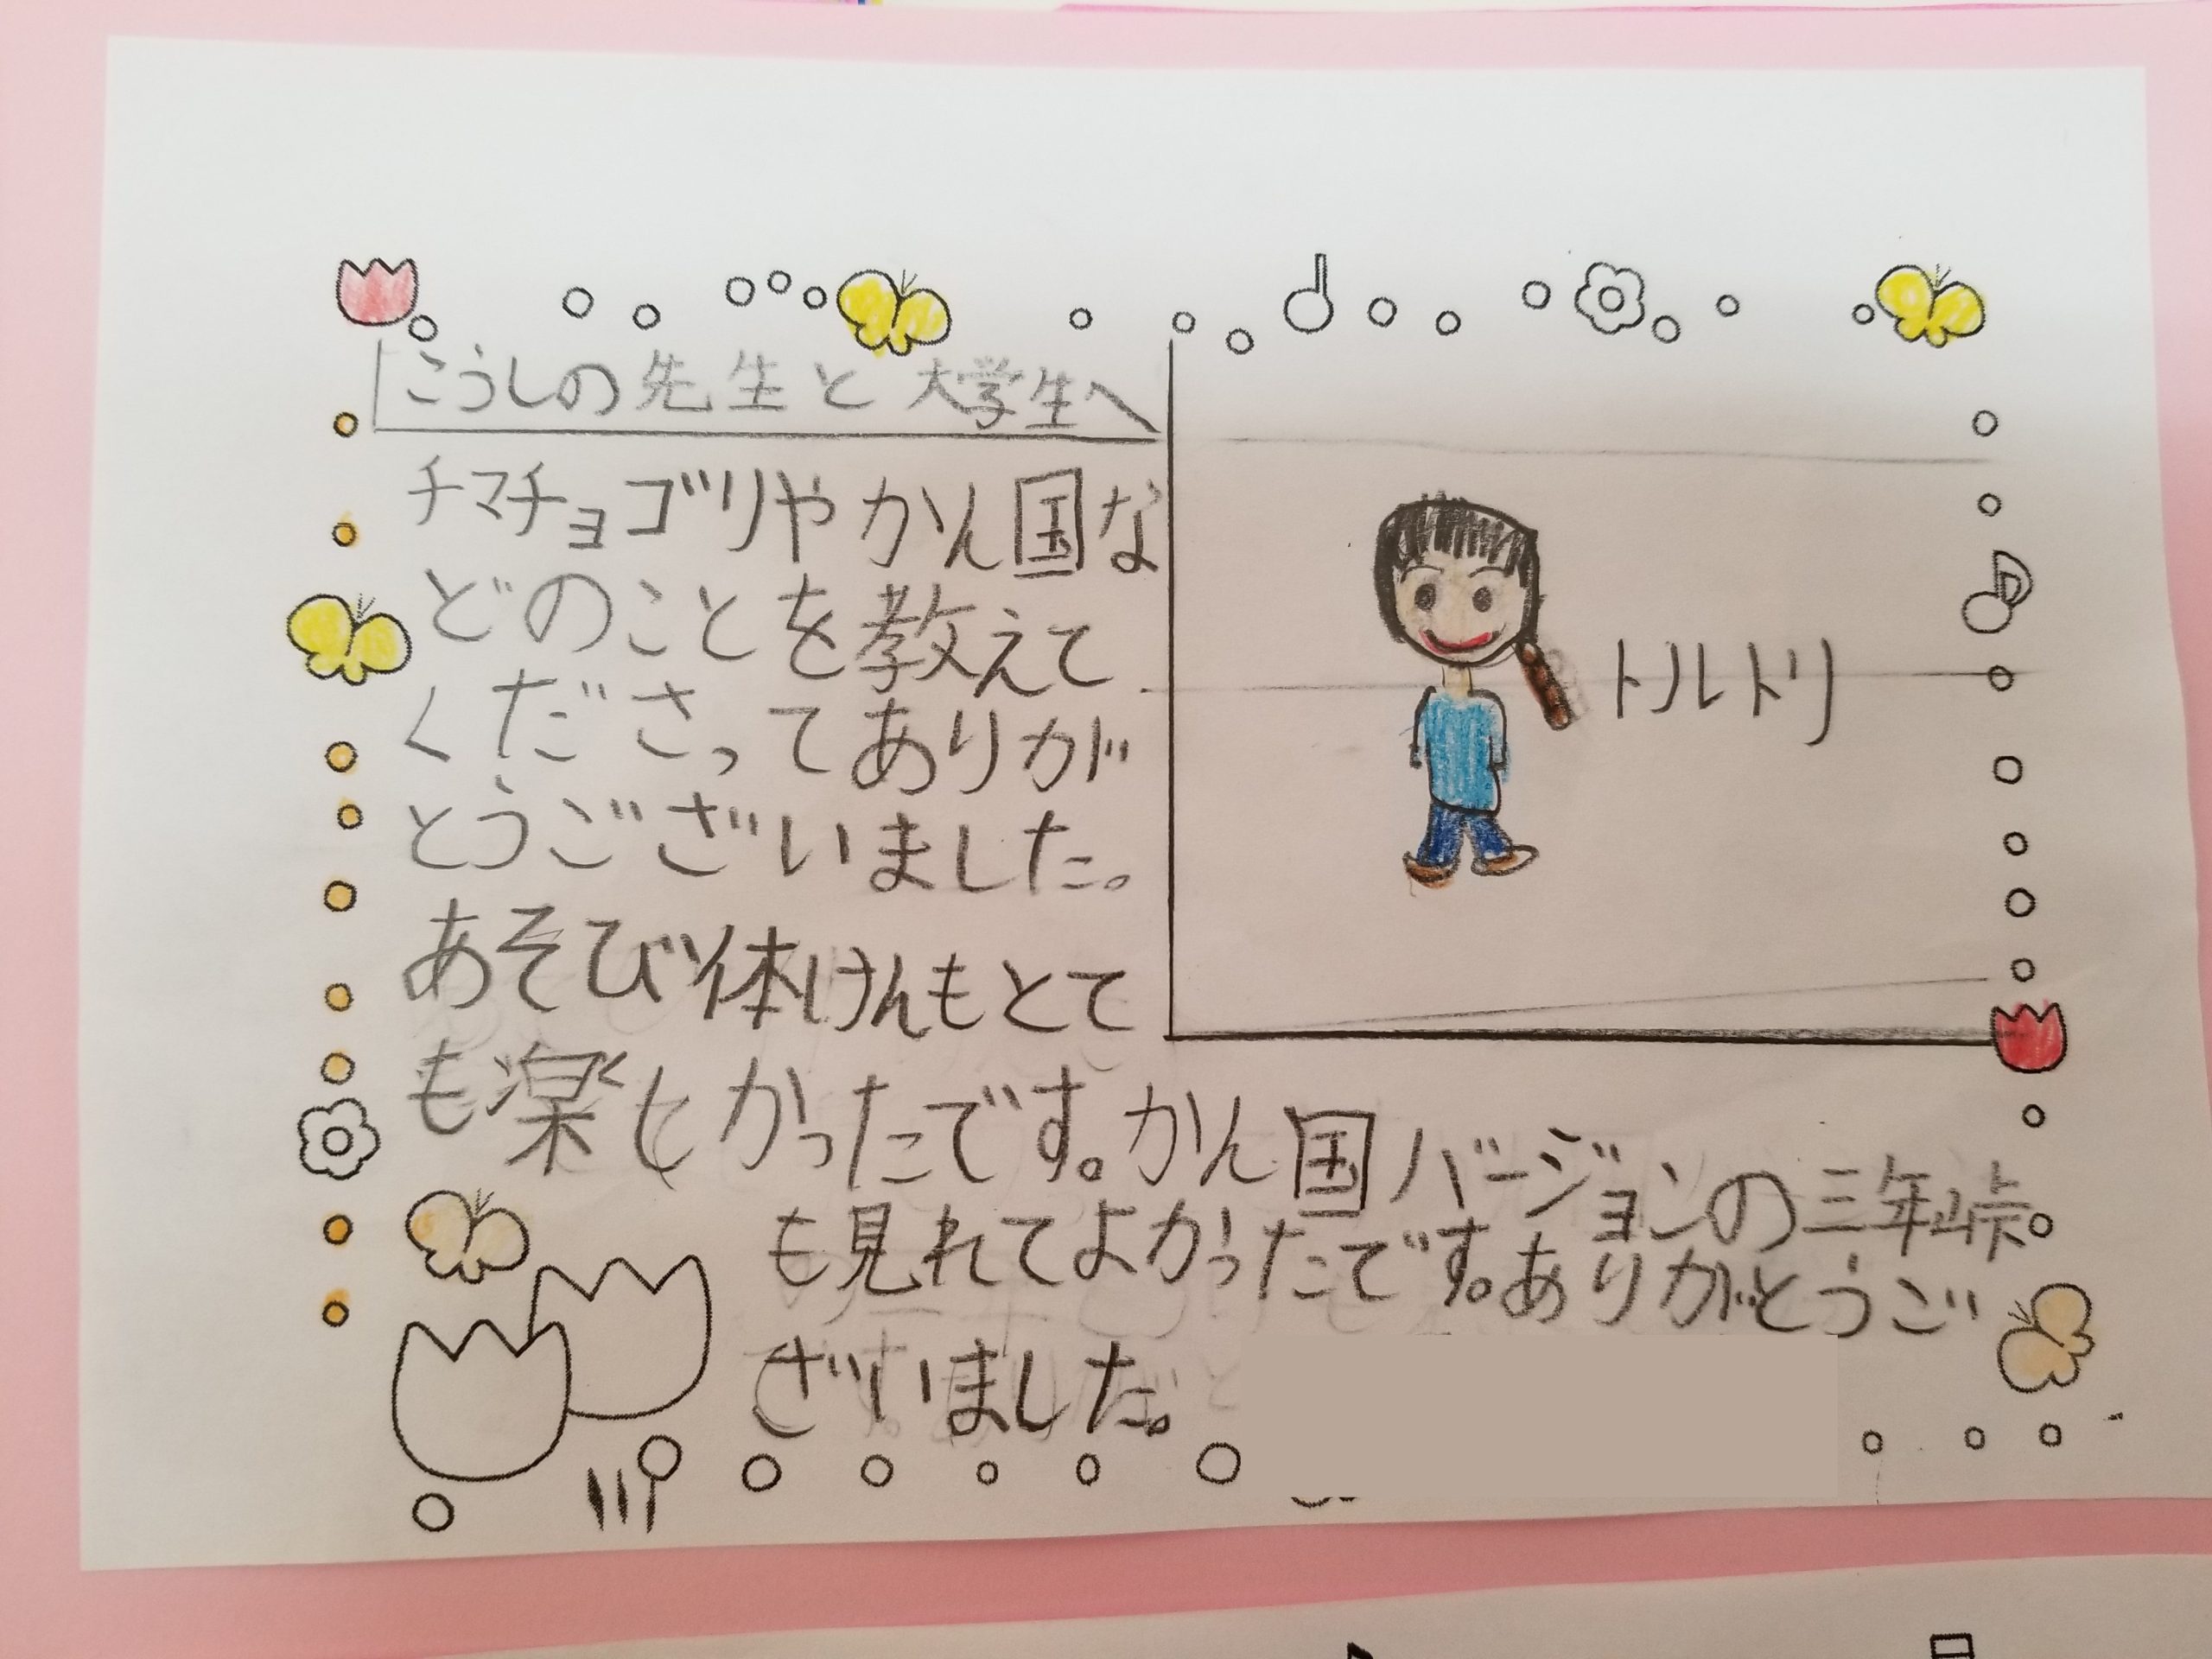 こうしの先生と大学生へ
チマチョゴリやかん国な
どのことを教えて
くださってありが
とうございました。
あそび体けんもとて
も楽しかったです。かん国バージョンの三年峠
も見れてよかったです。ありがとうご
ざいました。
トルトリ